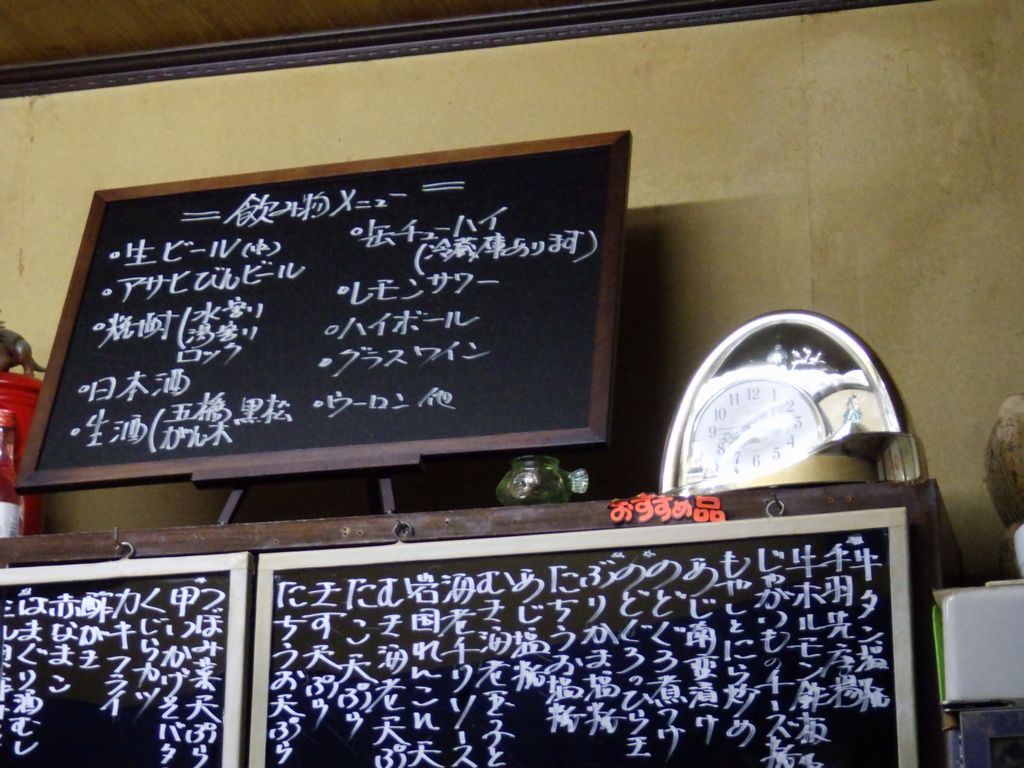 ＝飲み物メニュー＝
・生ビール(中)
・アサヒびんビール
・焼酎(水割り
湯割り
ロック
・日本酒
・生酒(五橋 黒松
がんぎ
・缶チューハイ
(冷蔵庫あります)
・レモンサワー
・ハイボール
・グラスワイン
・ウーロン他
11 12 1 2 3 4 5 6 7 8 9 10
おすすめ品
牛タン塩焼
手羽先唐揚
牛ホルモン鉄板
じゃがいものチーズ焼
もやしとにら炒め
あじ南蛮漬け
のどぐろ煮つけ
のどぐろっぴら王
ぶりかま塩焼
たちうお塩焼
あじ塩焼
むき海老玉子と
海老チリソース
岩国れんこん天
むき海老天ぷ
たこ天ぷら
きす天ぷら
たちうお天ぷら
つぼみ菜天ぷら
甲いかげそバタ
くじらカツ
カキフライ
酢がき
赤なまこ
はまぐり酒むし